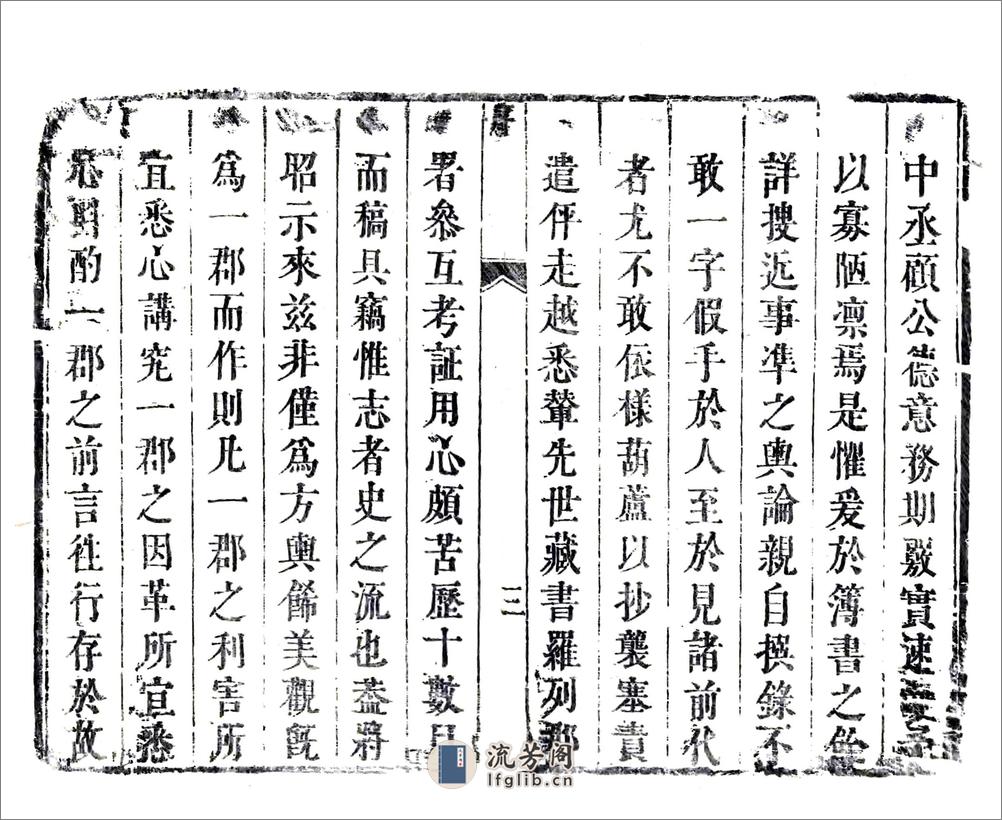 中丞顧公德意務期覈實速
以寡陋凛焉是懼爰於簿書之餘
詳搜近事凖之輿論親自撰錄不
敢一字假手於人至於見諸前代
者尤不敢依樣葫蘆以抄襲塞責
遣伻走越悉輦先世藏書羅列郡
三
署叅互考証用心頗苦歷十數月
而稿具竊惟志者史之流也葢將
昭示來兹非僅爲方輿餙美觀旣
爲一郡而作則凡一郡之利害所
宜悉心講究一郡之因革所宜悉
心斟酌一郡之前言徃行存於故
流芳阁
lfglib.cn